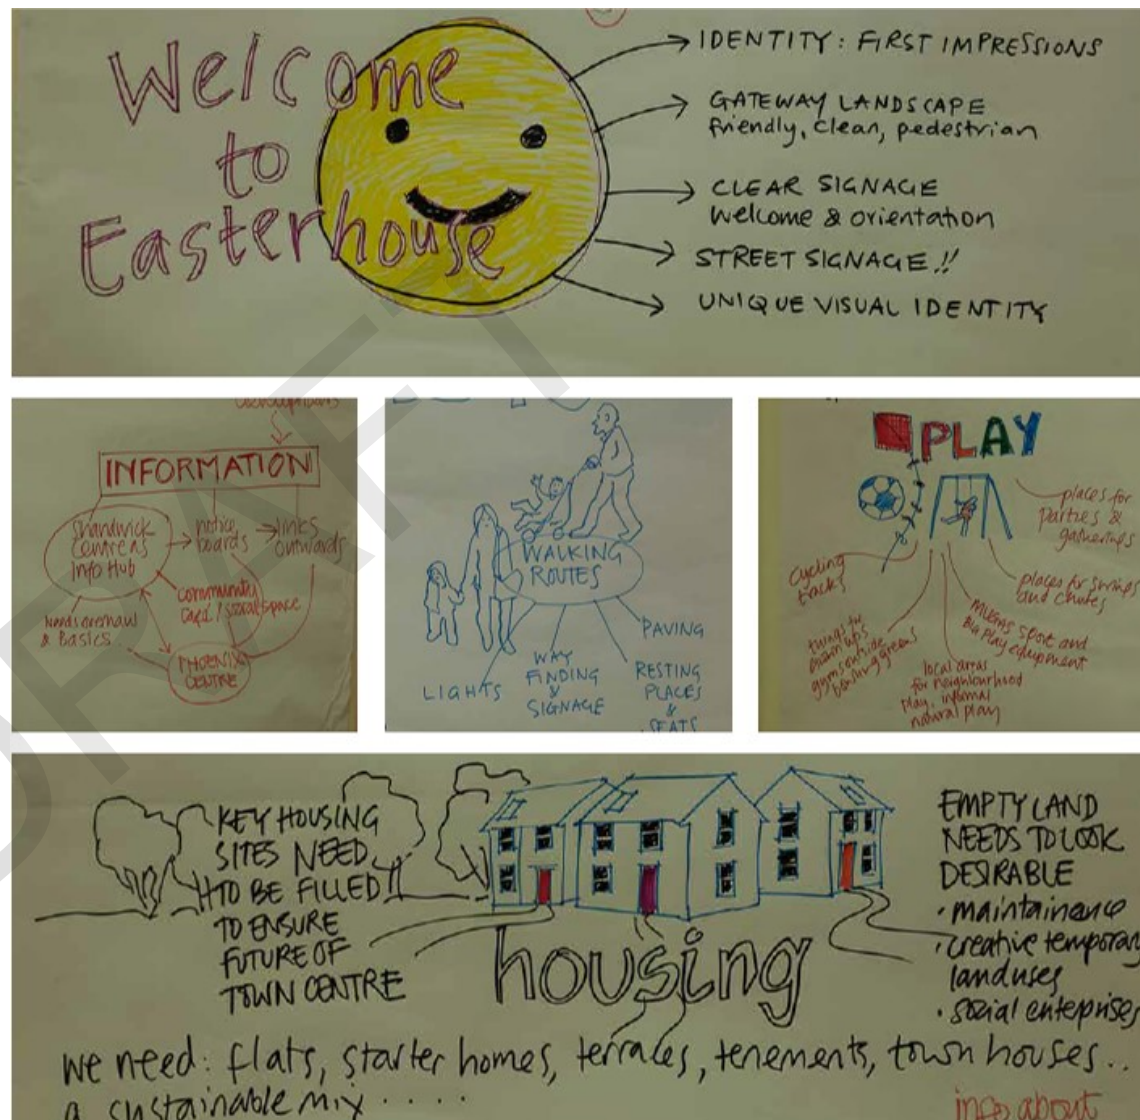 Welcome
to
Easterhouse
IDENTITY: FIRST IMPRESSIONS
GATEWAY LANDSCAPE
friendly, clean, pedestrian
CLEAR SIGNAGE
Welcome & orientation
STREET SIGNAGE!!
UNIQUE VISUAL IDENTITY
INFORMATION
Shandwick
Centre as
Info Hub
notice
boards
links
outwards
community
café / social space
needs overhaul
& basics
PHOENIX
CENTRE
WALKING
ROUTES
LIGHTS
WAY
FINDING
&
SIGNAGE
RESTING
PLACES
&
SEATS
PAVING
PLAY
places for
parties &
gatherings
cycling
tracks
places for swings
and chutes
MUGAs sport and
Big Play equipment
things for
grown ups
gyms outside
bowling greens
local areas
for neighbourhood
play, informal
natural play
KEY HOUSING
SITES NEED
TO BE FILLED
TO ENSURE
FUTURE OF
TOWN CENTRE
housing
EMPTY LAND
NEEDS TO LOOK
DESIRABLE
· maintainence
· creative temporary
landuses
· social enterprises
we need: flats, starter homes, terraces, tenements, town houses..
a sustainable mix ....
info about
DRAFT